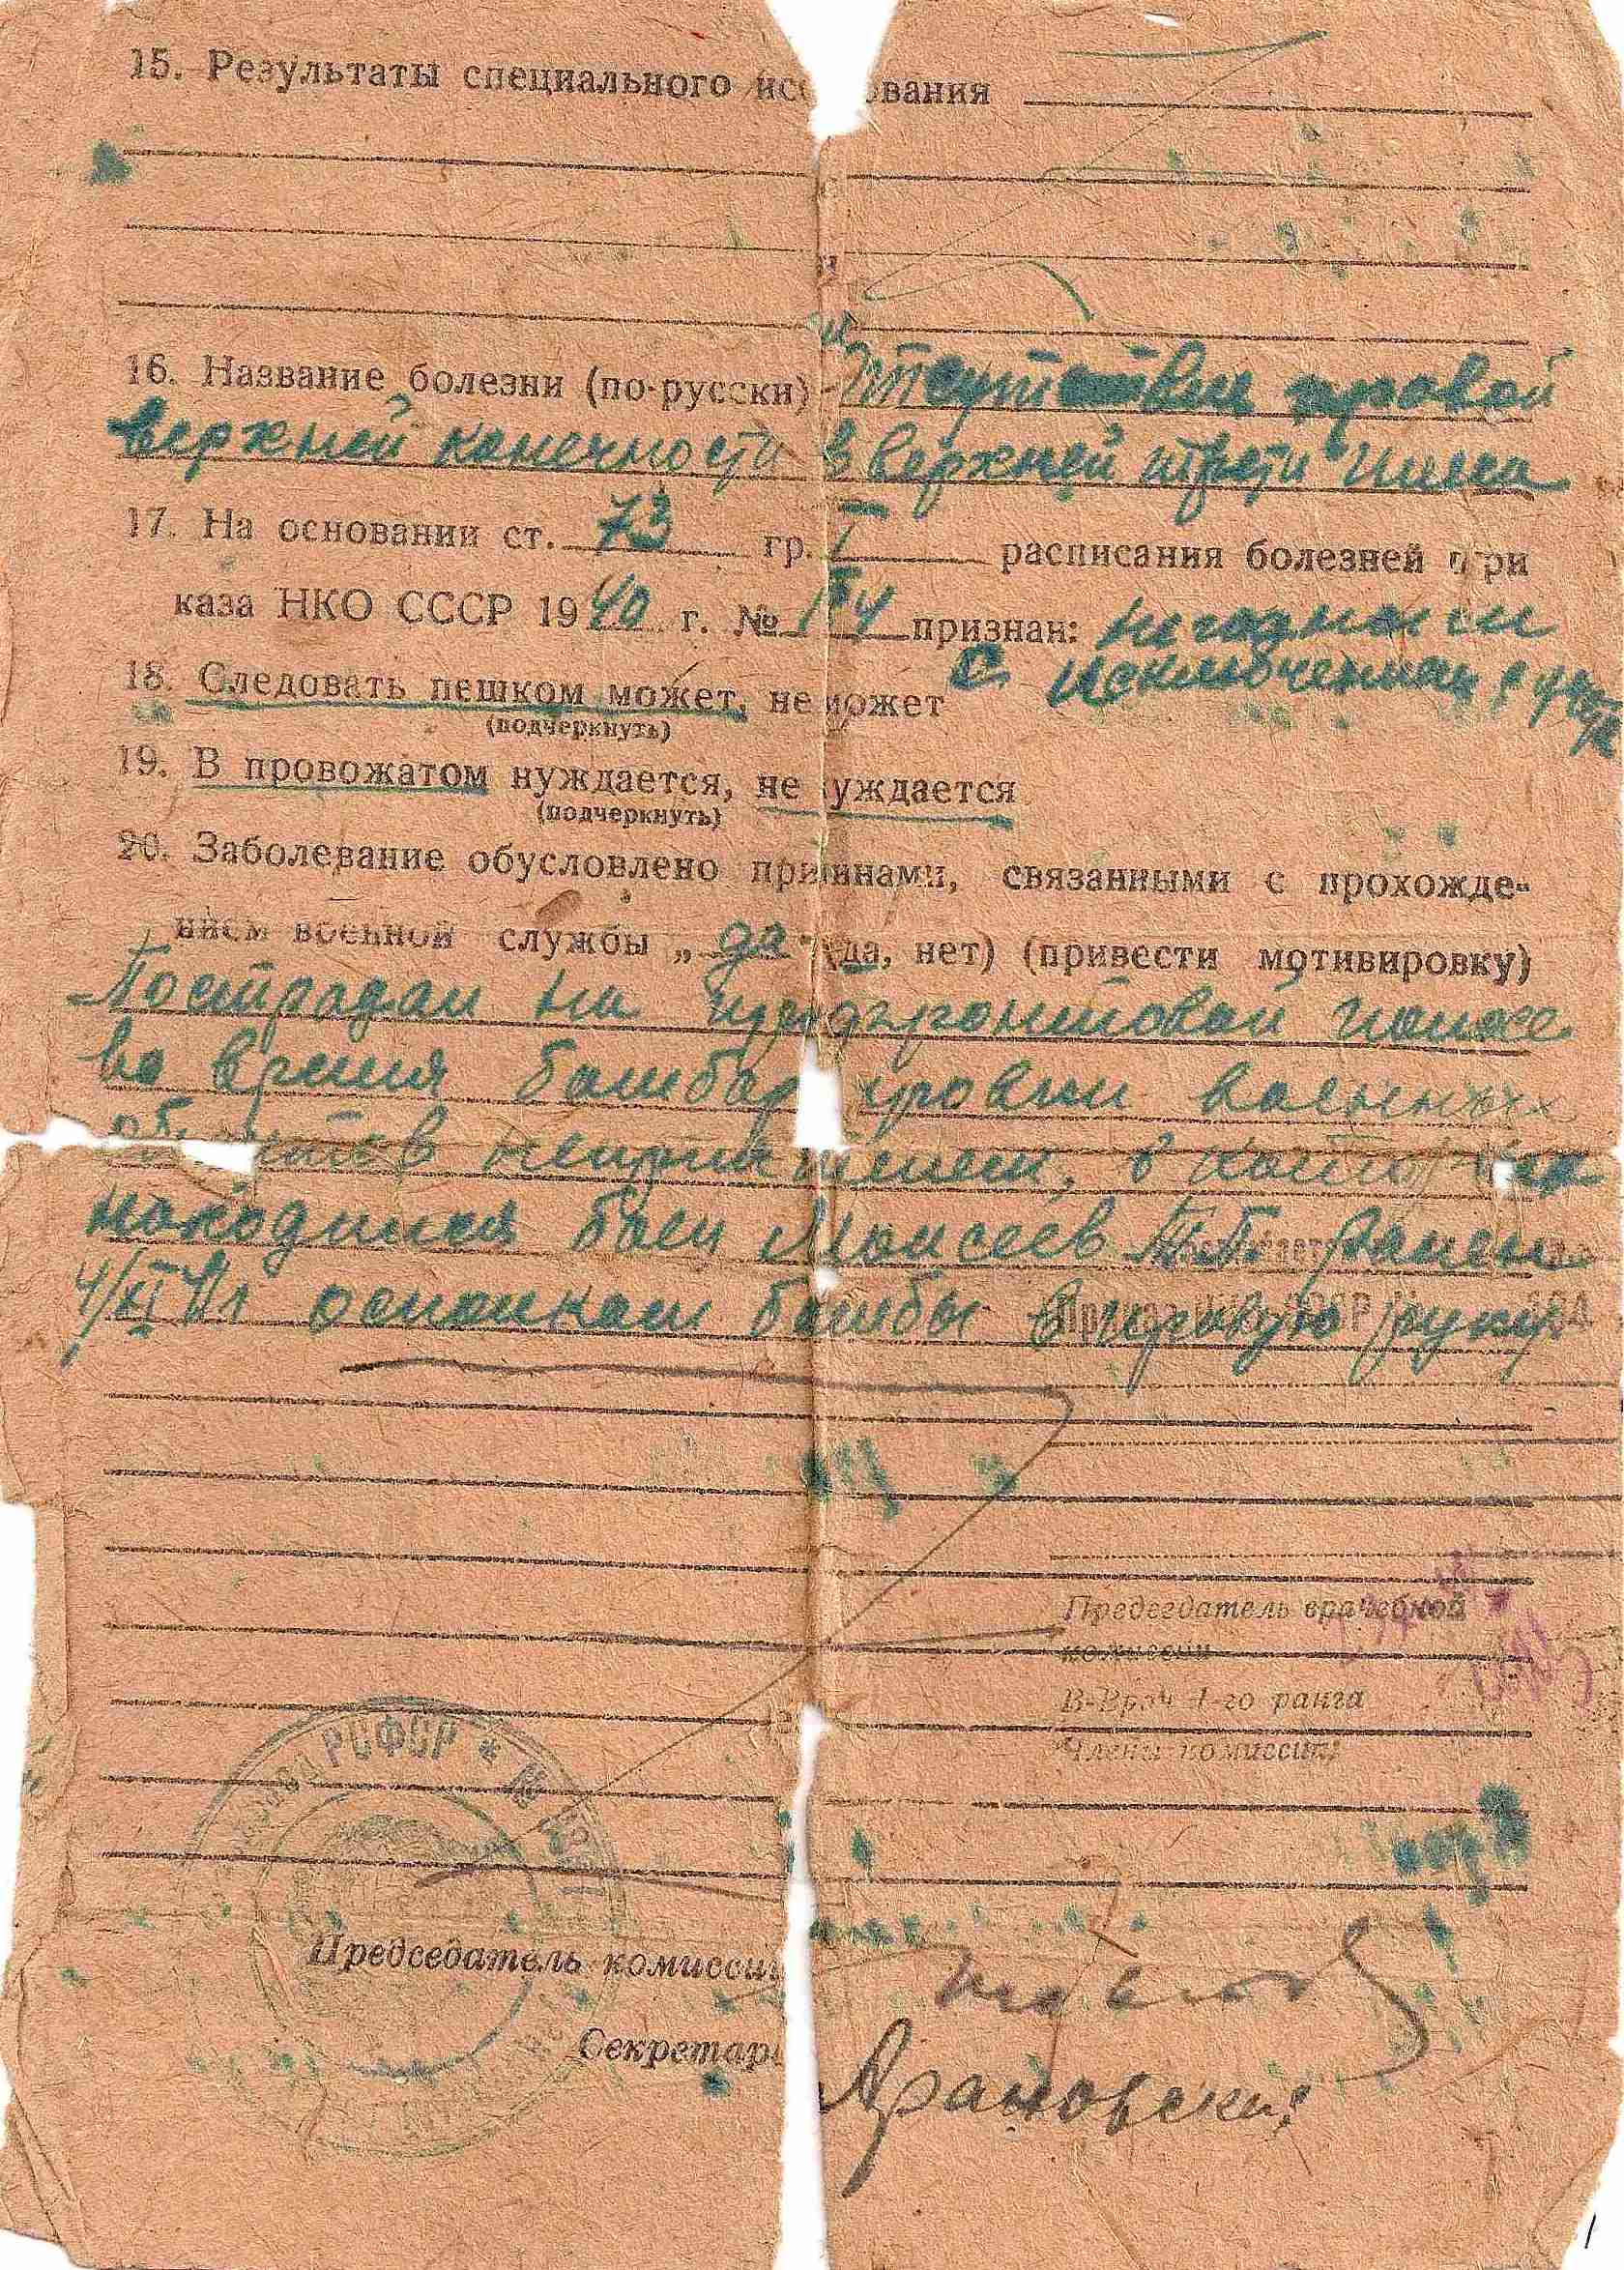 15. Результаты специального исс ования
16. Название болезни (по-русски) Отсутствие правой
верхней конечности в верхней трети плеча
17. На основании ст. 73 гр. I расписания болезней при
каза НКО СССР 1940 г. № 184 признан: негодным
с исключением с учета
18. Следовать пешком может, не может
(подчеркнуть)
19. В провожатом нуждается, не нуждается
(подчеркнуть)
20. Заболевание обусловлено причинами, связанными с прохожде-
нием военной службы „ да " (да, нет) (привести мотивировку)
Пострадал на прифронтовой полосе
во время бомбардировки военных
объектов неприятелем, в которых
находился боец Моисеев П.П. Ранен
4/XI 41 г осколком бомбы в правую руку
Приказ НКО СССР №
Председатель врачебной
комиссии
В-Врач 1-го ранга
Члены комиссии:
РСФСР *
Председатель комиссии
Секретарь